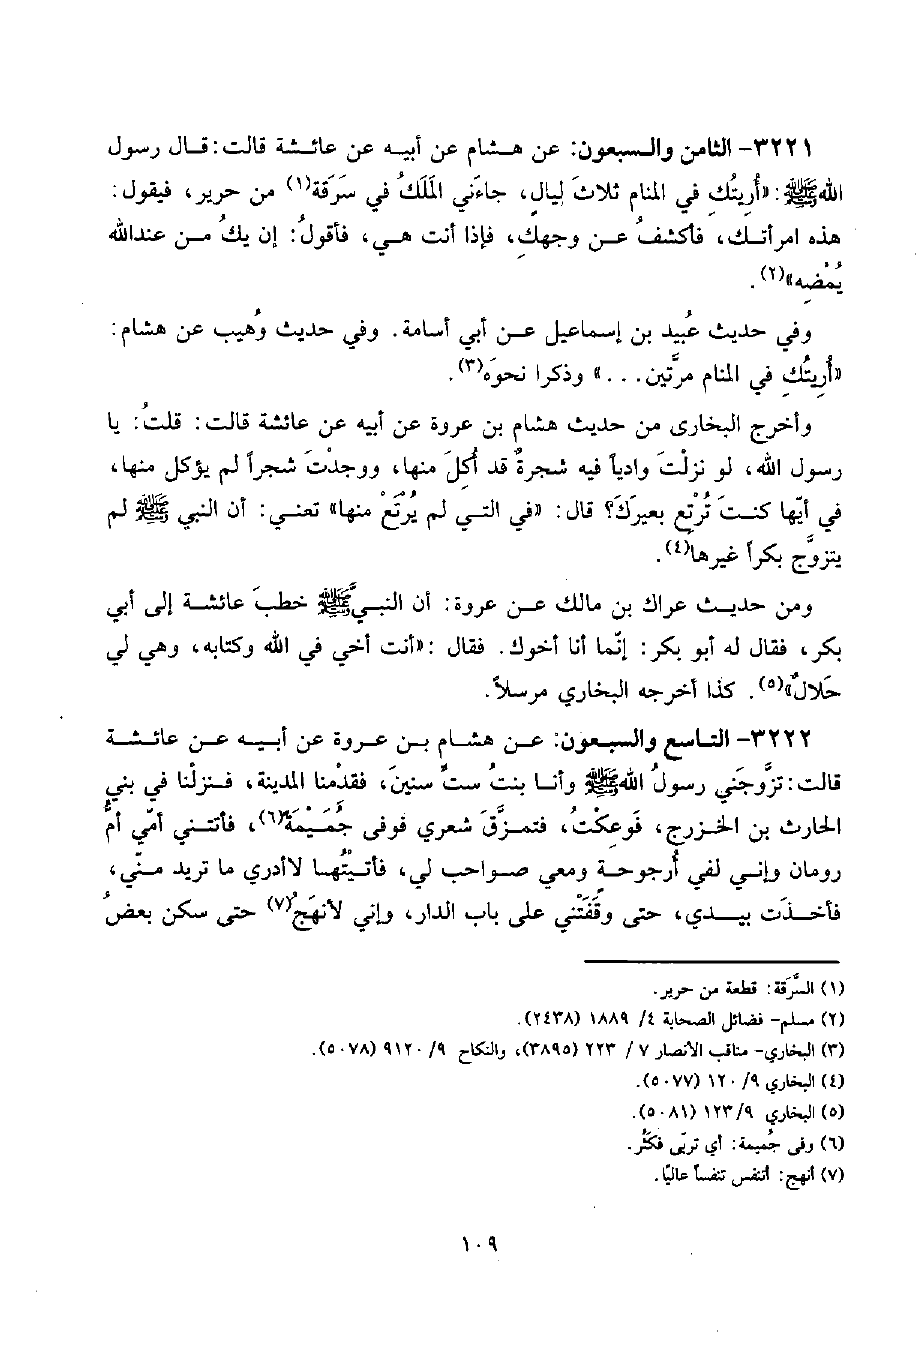 ٣٢٢١- الثامن والسبعون: عن هشام عن أبيه عن عائشة قالت: قال رسول
اللهﷺ: «أُرِيتُكِ في المنام ثلاثَ لَيالٍ، جاءَني الَملَكُ في سَرَقة(١) من حريرٍ، فيقول:
هذه امرأتك، فأكشفُ عن وجهِكِ، فإذا أنت هي، فأقولُ: إن يكُ من عندالله
يُمْضِه»(٢).
وفي حديث عُبيد بن إسماعيل عن أبي أسامة. وفي حديث وُهيب عن هشام:
«أُرِيتُكِ في المنام مرَّتين...» وذكرا نحوَه(٣).
وأخرج البخاري من حديث هشام بن عروة عن أبيه عن عائشة قالت: قلتُ: يا
رسول الله، لو نزلْتَ وادياً فيه شجرةٌ قد أُكِلَ منها، ووجدْتَ شجراً لم يؤكل منها،
في أيّها كنتَ تُرْتِع بعيرَكَ؟ قال: «في التي لم يُرْتَعْ منها» تعني: أن النبي ﷺ لم
يتزوَّج بكراً غيرها(٤).
ومن حديث عراك بن مالك عن عروة: أن النبيَّﷺ خطبَ عائشة إلى أبي
بكر، فقال له أبو بكر: إنّما أنا أخوك. فقال :«أنت أخي في الله وكتابه، وهي لي
حَلالٌ»(٥). كذا أخرجه البخاري مرسلاً.
٣٢٢٢- التاسع والسبعون: عن هشام بن عروة عن أبيه عن عائشة
قالت: تزوَّجني رسولُ اللهﷺ وأنا بنتُ ستِّ سنينَ، فقدْمنا المدينة، فنزلْنا في بني
الحارث بن الخزرج، فَوعِكْتُ، فتمزَّقَ شعري فوفى جُمَيْمَةً(٦)، فأتتني أمّي أمُّ
رومان وإني لفي أُرجوحة ومعي صواحب لي، فأتيتُها لاأدري ما تريد منّي،
فأخذَت بيدي، حتى وقَفَتْني على باب الدار، وإني لأَنهَجُ(٧) حتى سكن بعضُ
(١) السَّرَقة: قطعة من حرير.
(٢) مسلم- فضائل الصحابة ٤/ ١٨٨٩ (٢٤٣٨).
(٣) البخاري- مناقب الأنصار ٧ / ٢٢٣ (٣٨٩٥)، والنكاح ٩/ ٩١٢٠ (٥٠٧٨).
(٤) البخاري ٩/ ١٢٠ (٥٠٧٧).
(٥) البخاري ٩/ ١٢٣ (٥٠٨١).
(٦) وفى جُميمة: أي تربّى فكَثُر.
(٧) أنهج: أتنفس تنفساً عالياً.
١٠٩